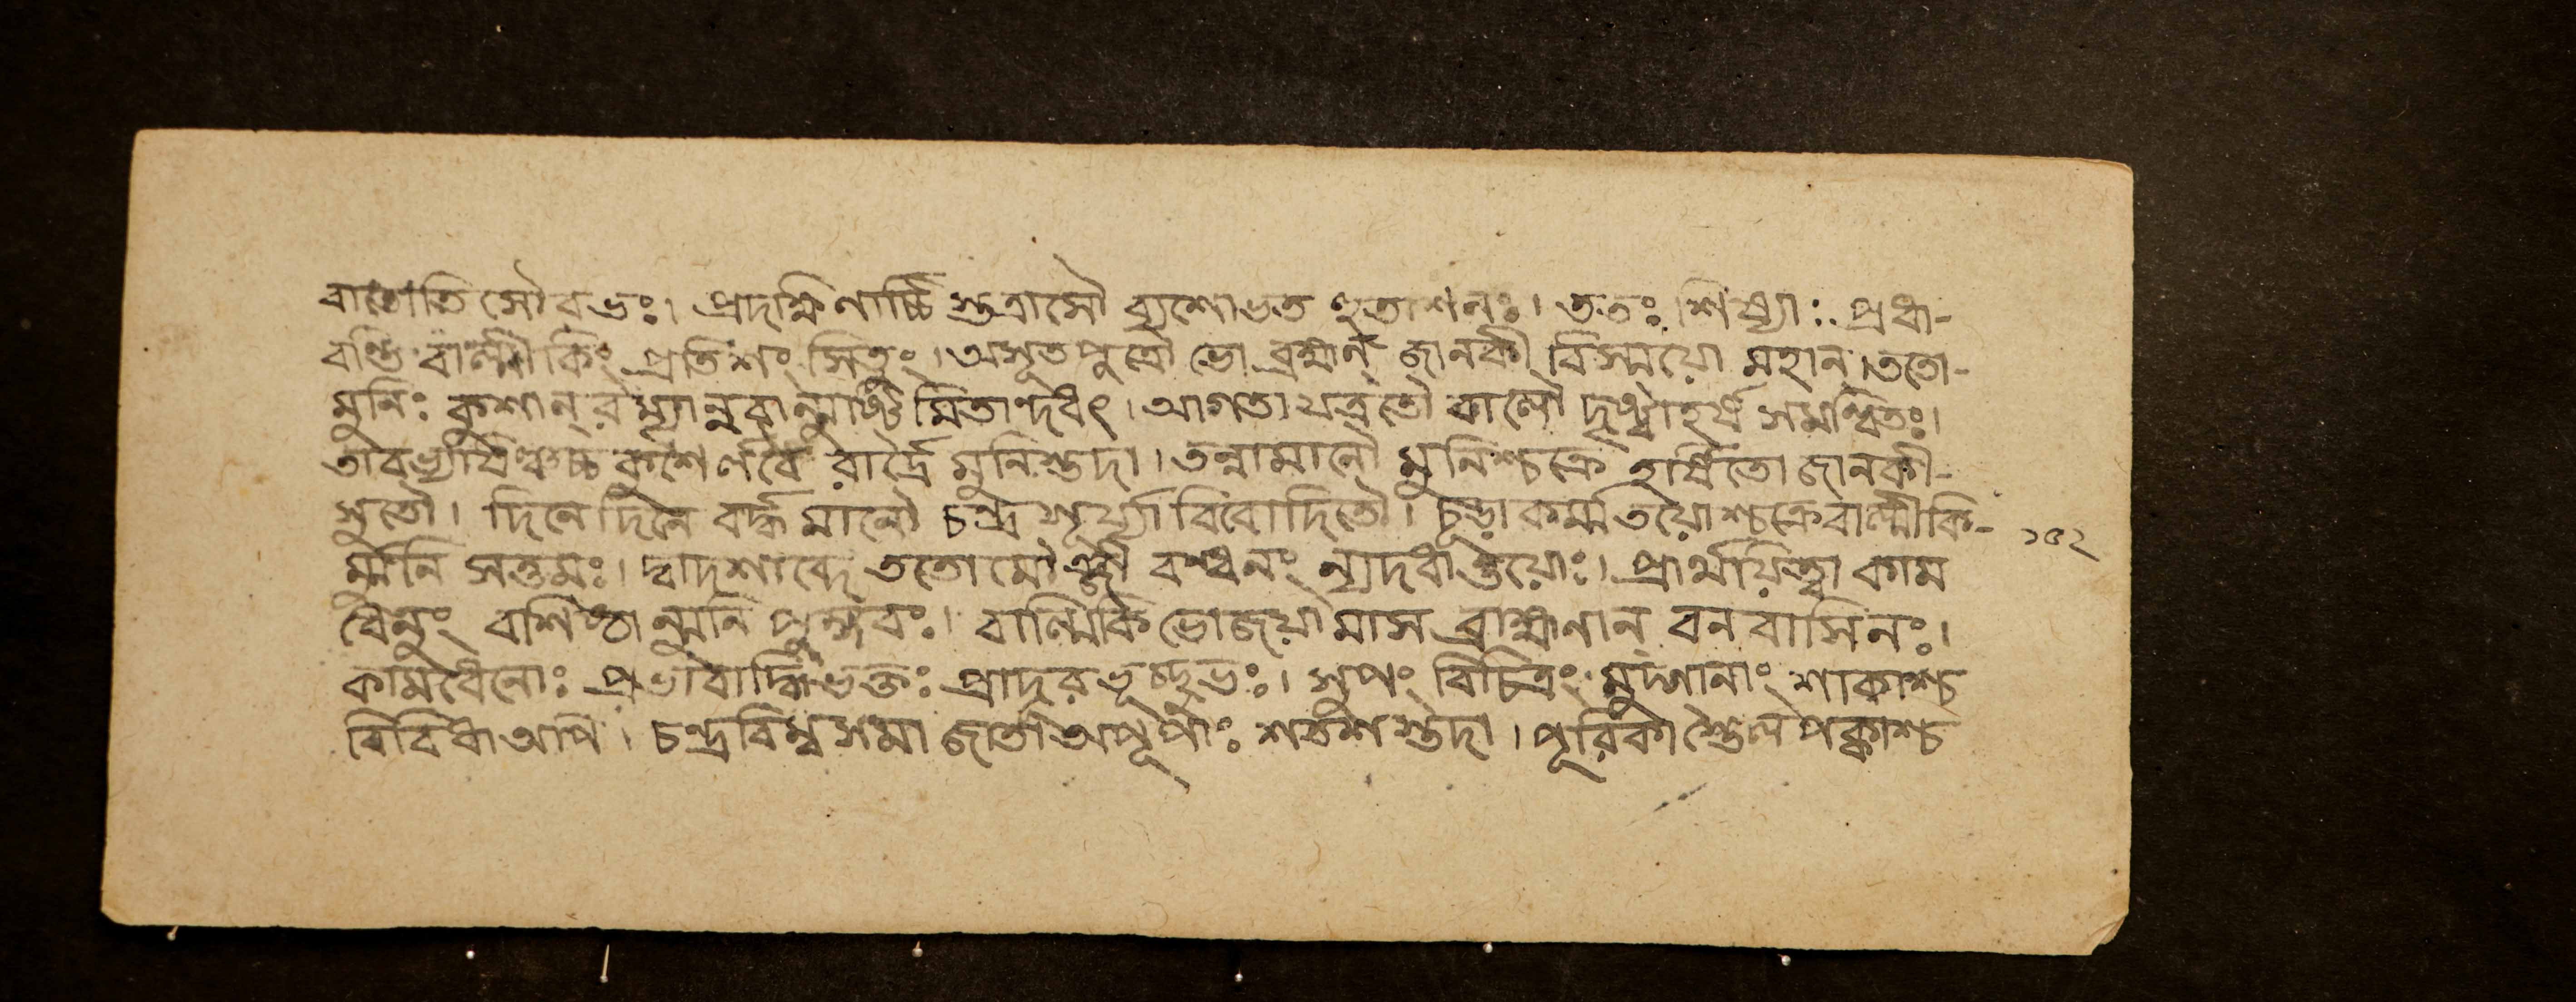 বাতোতি সৌরভঃ। প্রদক্ষিণার্চ্চি স্তত্রাসৌ ব্যশোভত হুতাশনঃ। ততঃ শিষ্যাঃ প্রধা-
বন্তি বাল্মীকিং প্রতিশংসিতুং। অসূত পুত্রৌ ভো ব্রহ্মন্ জানকী বিস্ময়ো মহান্। ততো-
মুনিঃ কুশান্ রম্যান্ আগতা যত্র তৌ বালৌ দৃষ্ট্বা হর্ষ সমন্বিতঃ।
তাবভ্যষিঞ্চচ্চ কুশৈর্লবৈ রার্দ্রৈ মুনিস্তদা। তন্নামানৌ মুনিশ্চক্রে হর্ষিতো জানকী-
সুতৌ। দিনে দিনে বর্দ্ধমানৌ চন্দ্র সূর্য্যা বিবোদিতৌ। চূড়াকর্ম্ম তয়োশ্চক্রে বাল্মীকি- ১৫২
র্ম্মুনি সত্তমঃ। দ্বাদশাব্দে ততো মৌঞ্জী বন্ধনং ন্যদধাত্তয়োঃ। প্রার্থয়িত্বা কাম
ধেনুং বশিষ্ঠান্মুনি পুঙ্গবঃ। বাল্মিকি ভোজয়ামাস ব্রাহ্মণান্ বনবাসিনঃ।
কামধেনোঃ প্রভাবাদ্ধি ভক্তঃ প্রাদুরভূচ্ছুভঃ। সুপং বিচিত্রং মুদ্গানাং শাকাশ্চ
বিবিধা অপি। চন্দ্রবিম্ব সমা জাতা অপূপাঃ শতশস্তদা। পূরিকা স্তৈল পক্কাশ্চ